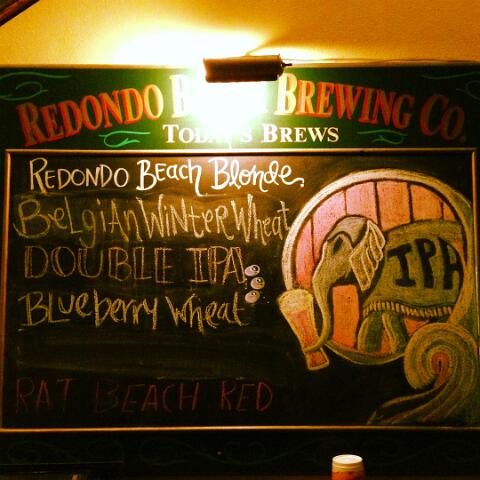 REDONDO BEACH BREWING CO.
TODAY'S BREWS
REDONDO BEACH BLONDE
BELGIAN WINTER WHEAT
DOUBLE IPA
BLUEBERRY WHEAT
RAT BEACH RED
IPA